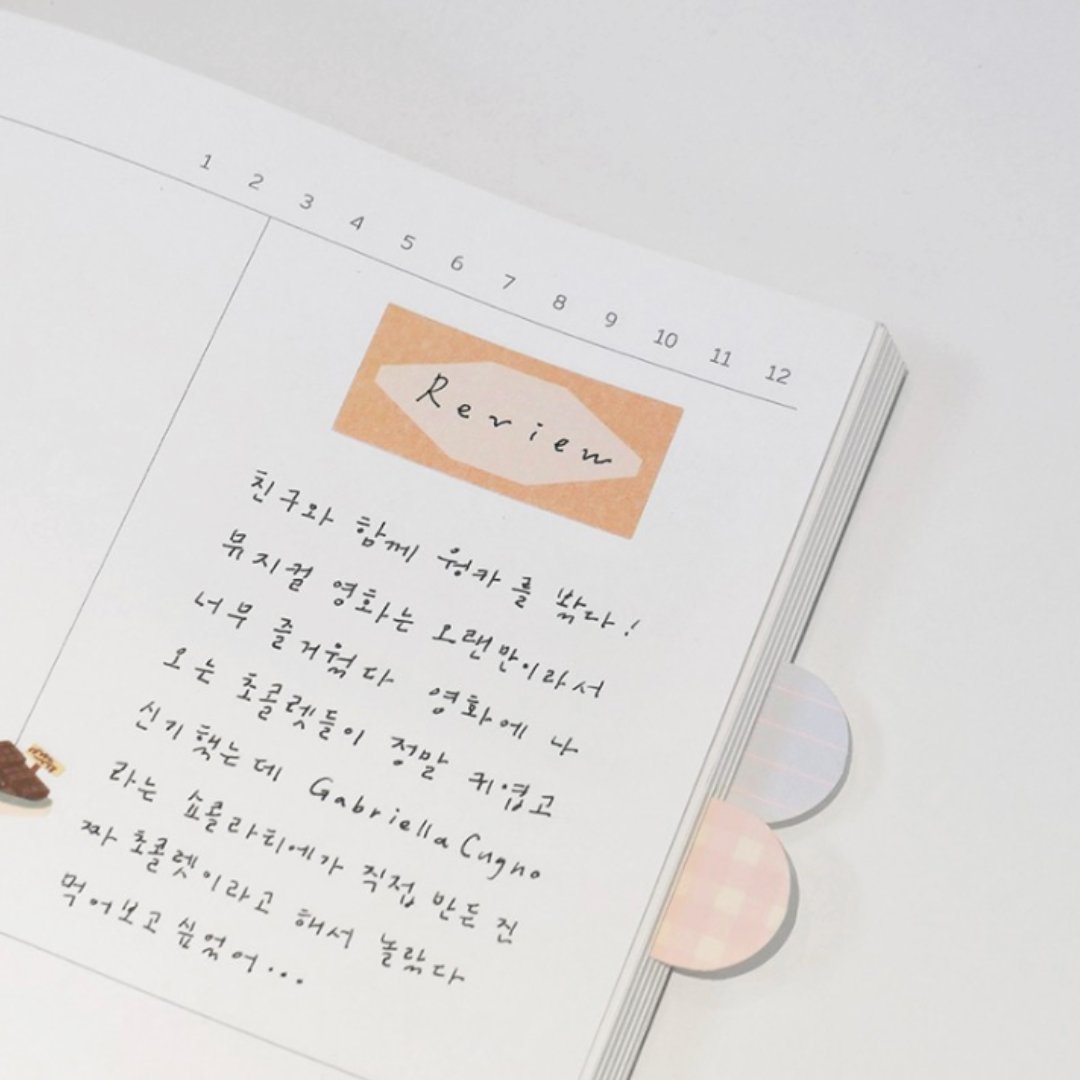 1 2 3 4 5 6 7 8 9 10 11 12
Review
친구와 함께 웡카를 봤다!
뮤지컬 영화는 오랜만이라서
너무 즐거웠다 영화에 나
오는 초콜렛들이 정말 귀엽고
신기했는데 Gabriella Cugno
라는 쇼콜라티에가 직접 만든 진
짜 초콜렛이라고 해서 놀랐다
먹어보고 싶었어...